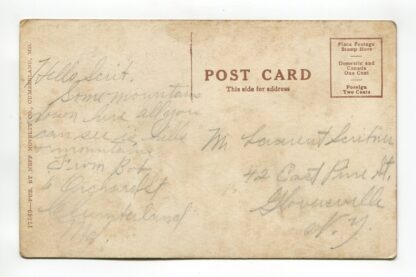 Hello Scrit.
Some mountains
down here all you
can see is blue
mountains
From Bob
6 Orchard St
Cumberland
Md.
POST CARD
This side for address
Place Postage
Stamp Here
Domestic and
Canada
One Cent
Foreign
Two Cents
Mr. Laurent Scribner
42 East Pine St.
Gloversville
N. Y.
PUB. BY NEFF NOVELTY CO., CUMBERLAND, MD.